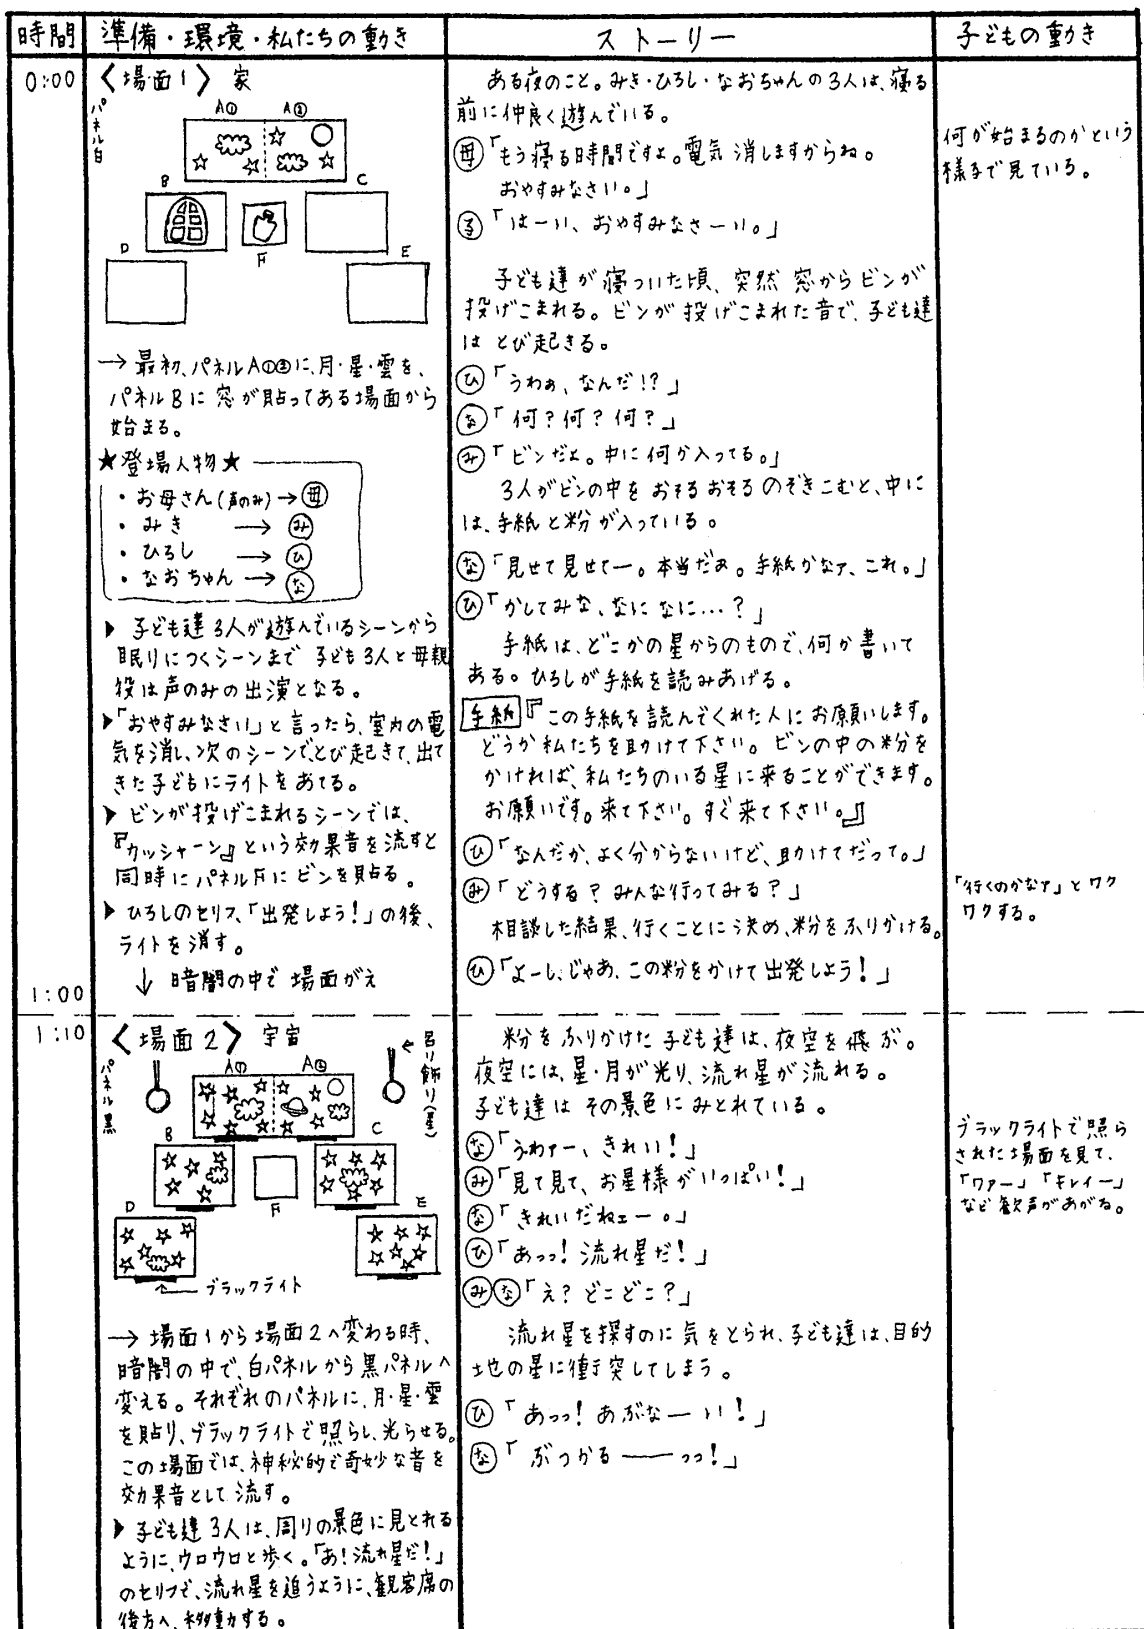 時間
準備・環境・私たちの動き
ストーリー
子どもの動き
0:00
〈場面1〉 家
パネル白
A① A②
B
C
D
F
E
→ 最初、パネルA①②に、月・星・雲を、
パネルBに窓が貼ってある場面から
始まる。
★登場人物★
・お母さん(声のみ)→母
・みき → み
・ひろし → ひ
・なおちゃん → な
▶ 子ども達3人が遊んでいるシーンから
眠りにつくシーンまで 子ども3人と母親
役は声のみの出演となる。
▶「おやすみなさい」と言ったら、室内の電
気を消し、次のシーンでとび起きて、出て
きた子どもにライトをあてる。
▶ ビンが投げこまれるシーンでは、
『カッシャーン』という効果音を流すと
同時にパネルFにビンを貼る。
▶ ひろしのセリフ、「出発しよう!」の後、
ライトを消す。
↓ 暗闇の中で 場面がえ
1:00
ある夜のこと。みき・ひろし・なおちゃんの3人は、寝る
前に仲良く遊んでいる。
母「もう寝る時間ですよ。電気 消しますからね。
おやすみなさい。」
る「はーい、おやすみなさーい。」
子ども達が寝ついた頃、突然 窓からビンが
投げこまれる。ビンが投げこまれた音で、子ども達
は とび起きる。
ひ「うわぁ、なんだ!?」
な「何?何?何?」
み「ビンだよ。中に何か入ってる。」
3人がビンの中を おそるおそる のぞきこむと、中に
は、手紙と粉が入っている。
な「見せて見せてー。本当だぁ。手紙かなァ、これ。」
ひ「かしてみな、なになに…?」
手紙は、どこかの星からのもので、何か書いて
ある。ひろしが手紙を読みあげる。
手紙『この手紙を読んでくれた人にお願いします。
どうか私たちを助けて下さい。ビンの中の粉を
かければ、私たちのいる星に来ることができます。
お願いです。来て下さい。すぐ来て下さい。』
ひ「なんだか、よく分からないけど、助けてだって。」
み「どうする? みんな行ってみる?」
相談した結果、行くことに決め、粉をふりかける。
ひ「よーし、じゃあ、この粉をかけて出発しよう!」
何が始まるのかという
様子で見ている。
「行くのかなァ」とワク
ワクする。
1:10
〈場面2〉 宇宙
パネル黒
A① A②
吊り飾り(星)
B
C
D
F
E
ブラックライト
→ 場面1から場面2へ変わる時、
暗闇の中で、白パネルから黒パネルへ
変える。それぞれのパネルに、月・星・雲
を貼り、ブラックライトで照らし、光らせる。
この場面では、神秘的で奇妙な音を
効果音として流す。
▶ 子ども達3人は、周りの景色に見とれる
ように、ウロウロと歩く。「あ!流れ星だ!」
のセリフで、流れ星を追うように、観客席の
後方へ、移動する。
粉をふりかけた子ども達は、夜空を飛ぶ。
夜空には、星・月が光り、流れ星が流れる。
子ども達は その景色にみとれている。
な「うわァー、きれい!」
み「見て見て、お星様がいっぱい!」
な「きれいだねェー。」
ひ「あっっ!流れ星だ!」
みな「え?どこどこ?」
流れ星を探すのに気をとられ、子ども達は、目的
地の星に衝突してしまう。
ひ「あっっ!あぶなーい!」
な「ぶつかる――っっ!」
ブラックライトで照ら
された場面を見て、
「ワァー」「キレイー」
など歓声があがる。